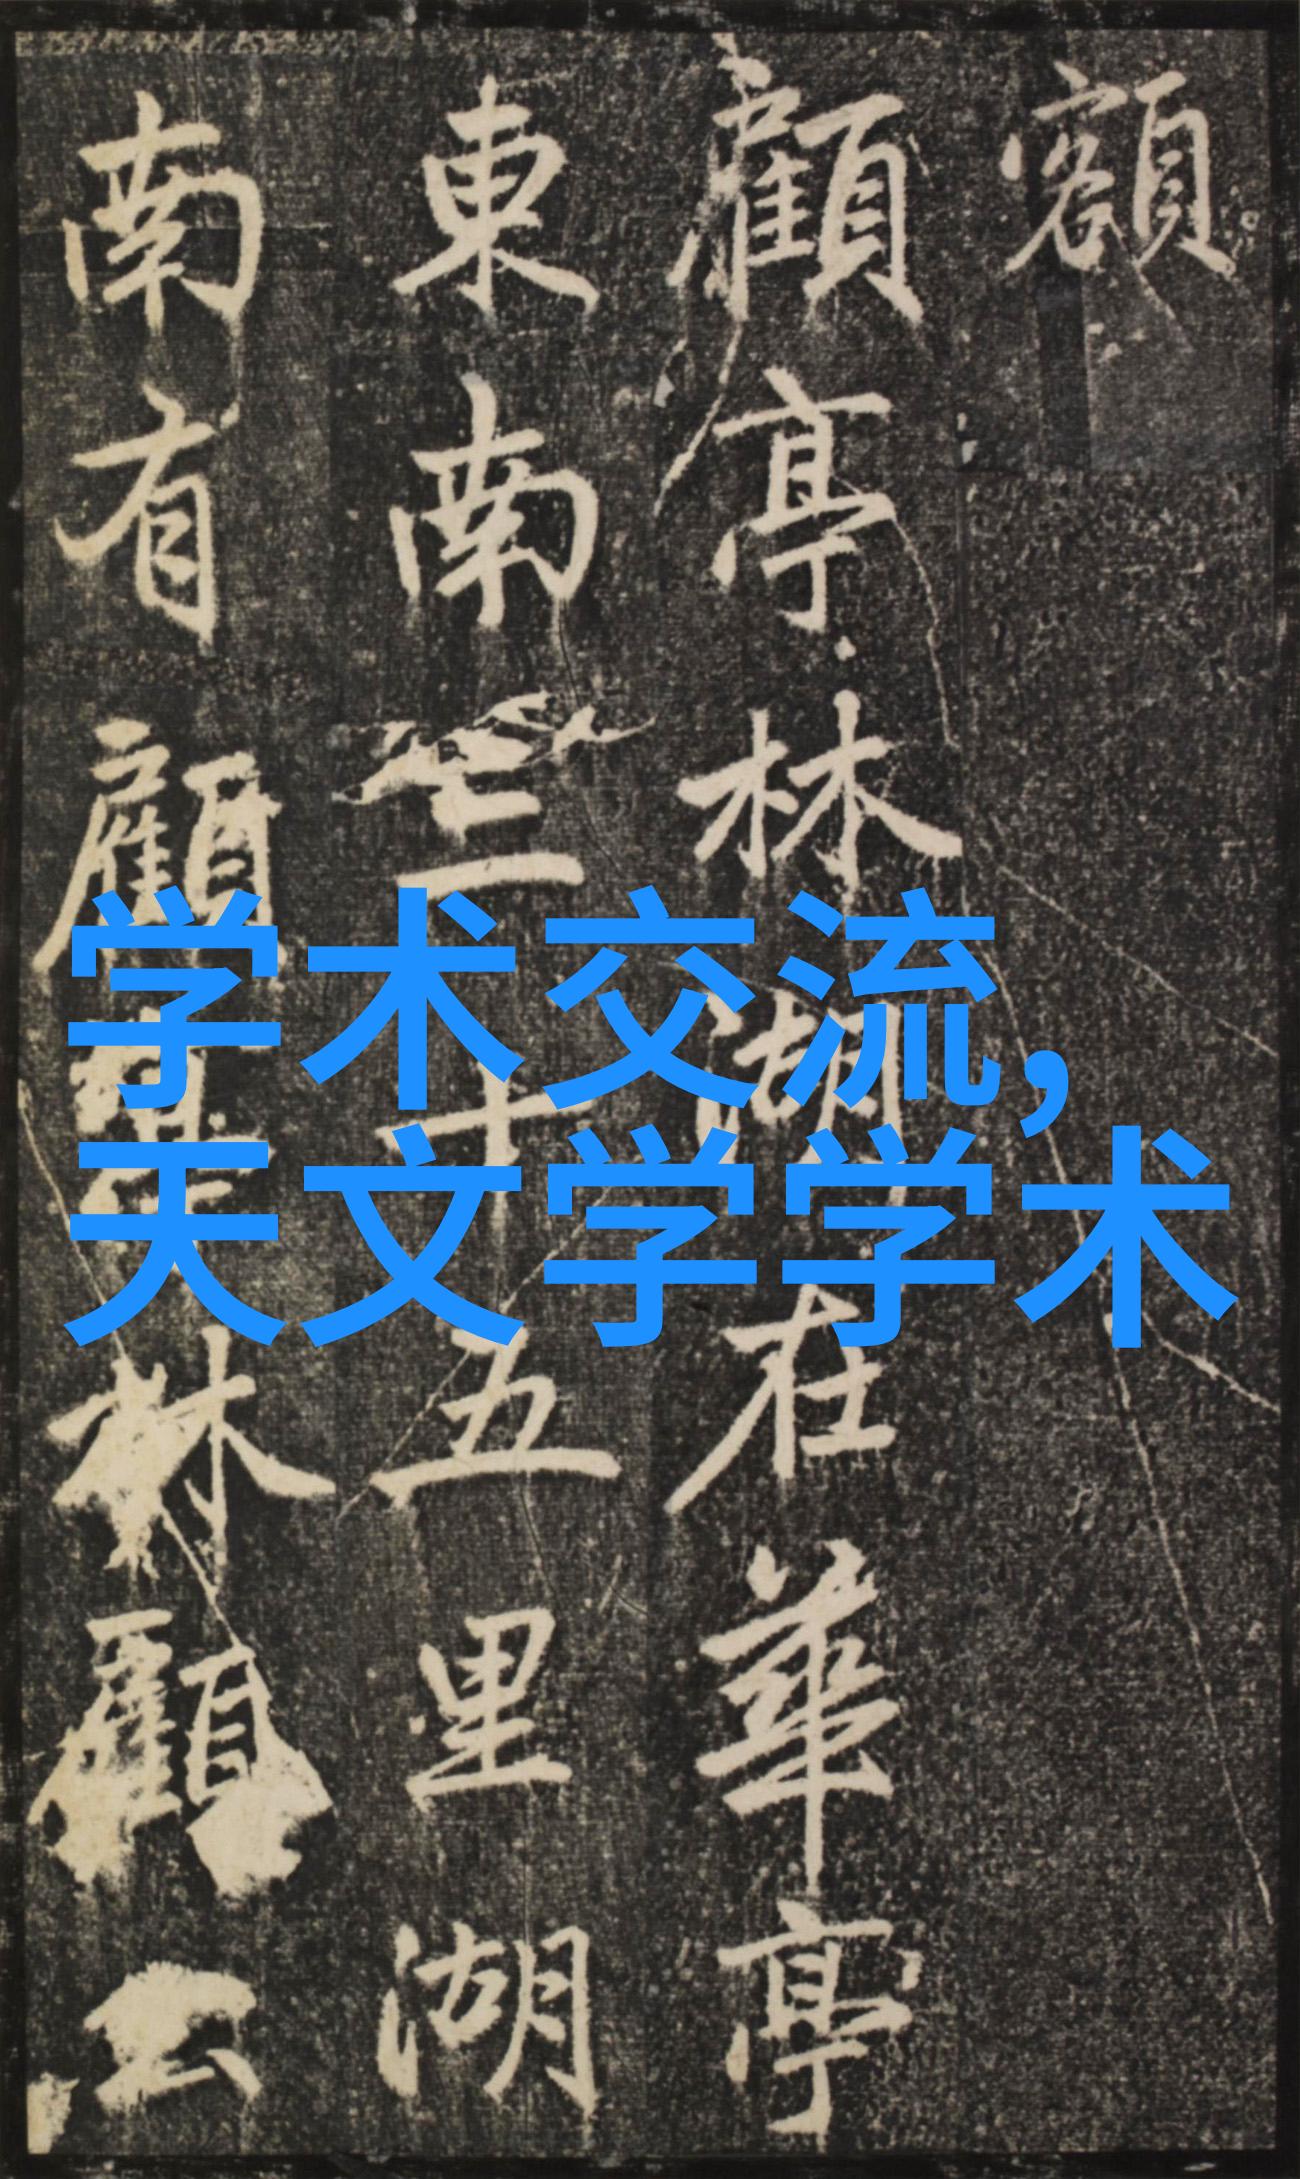 額
顧亭林湖在華亭
東南三十五里湖
南有顧亭林顧公
学术交流,
天文学学术